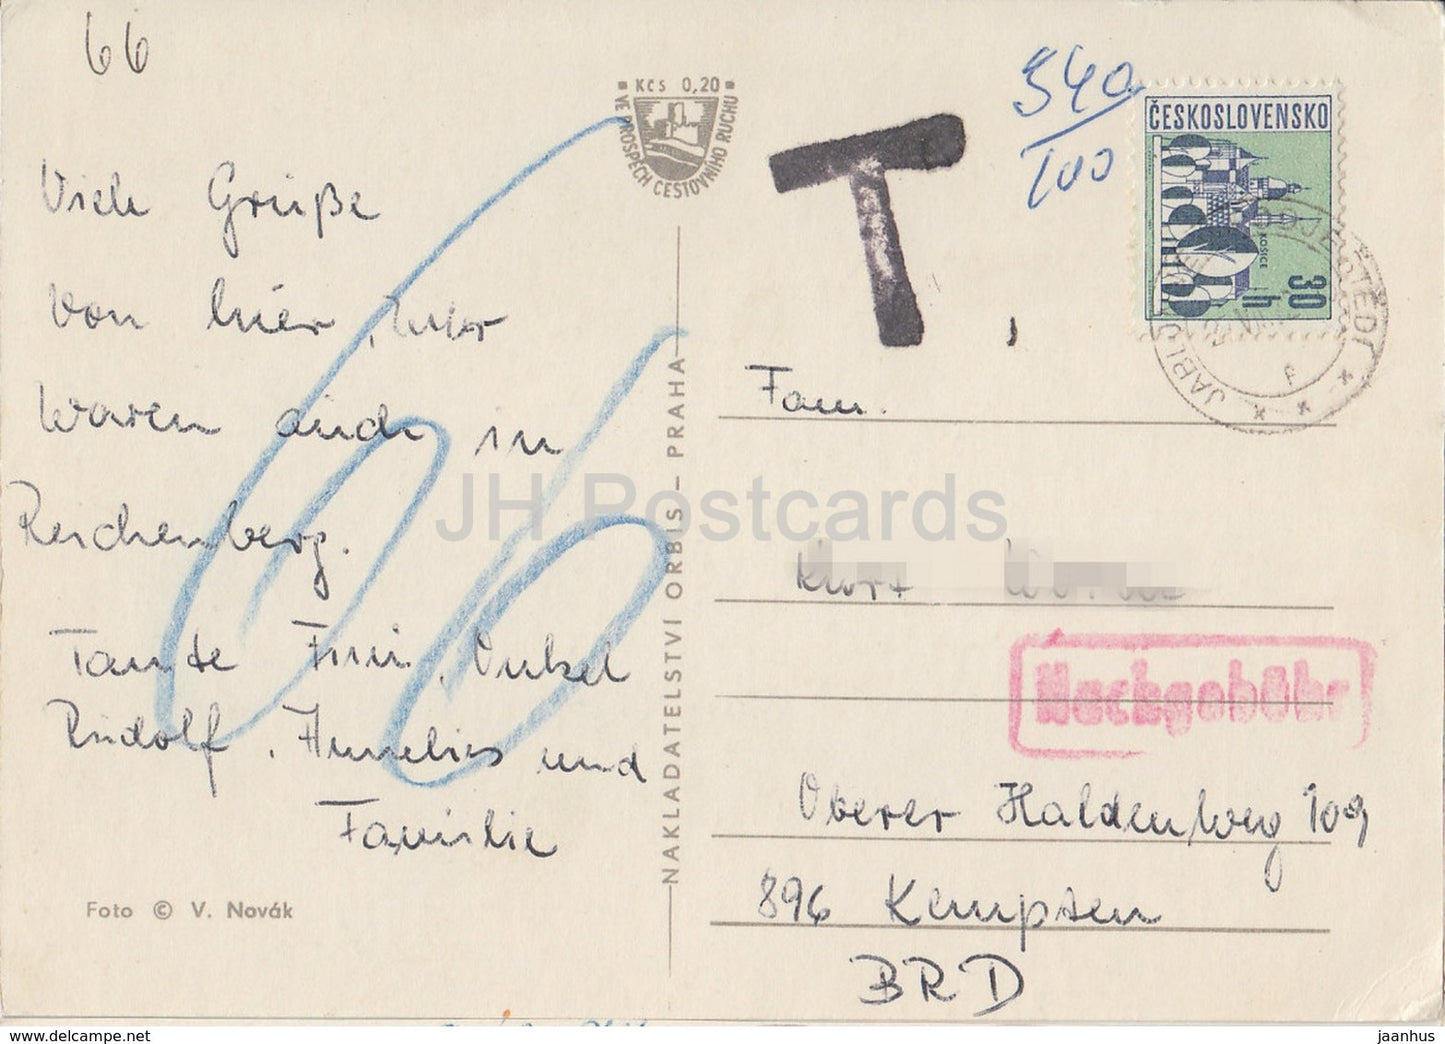 66
Viele Grüße
von hier, 
waren auch in
Reichenberg.
Tante Fini, Onkel
Rudolf, Annelies und
Familie
Foto © V. Novák
KČS 0,20
VE PROSPĚCH CESTOVNÍHO RUCHU
NAKLADATELSTVÍ ORBIS – PRAHA
T
340
100
ČESKOSLOVENSKO
KOŠICE
30
h
JABLO
Fam.
Kurt
Nachgebühr
Oberer Haldenweg 109
896 Kempten
BRD
JH Postcards
www.delcampe.net
jaanhus